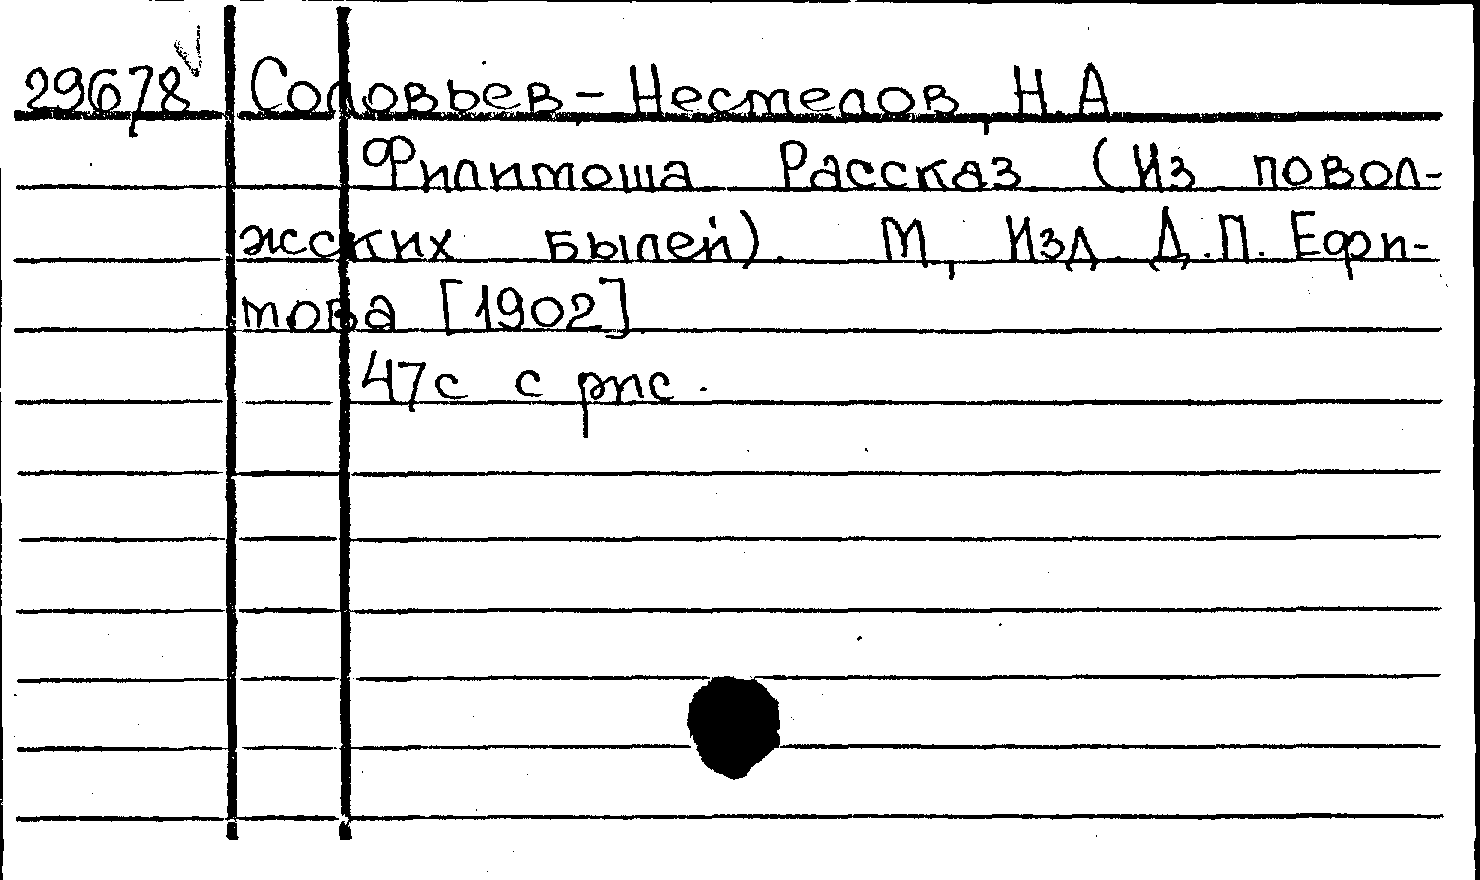 29678 Соловьев-Нестелов, Н.А
Филимоша Рассказ (Из повол-
жских былей). М, Изд. Д.П. Ефи-
мова [1902]
47с с рис.